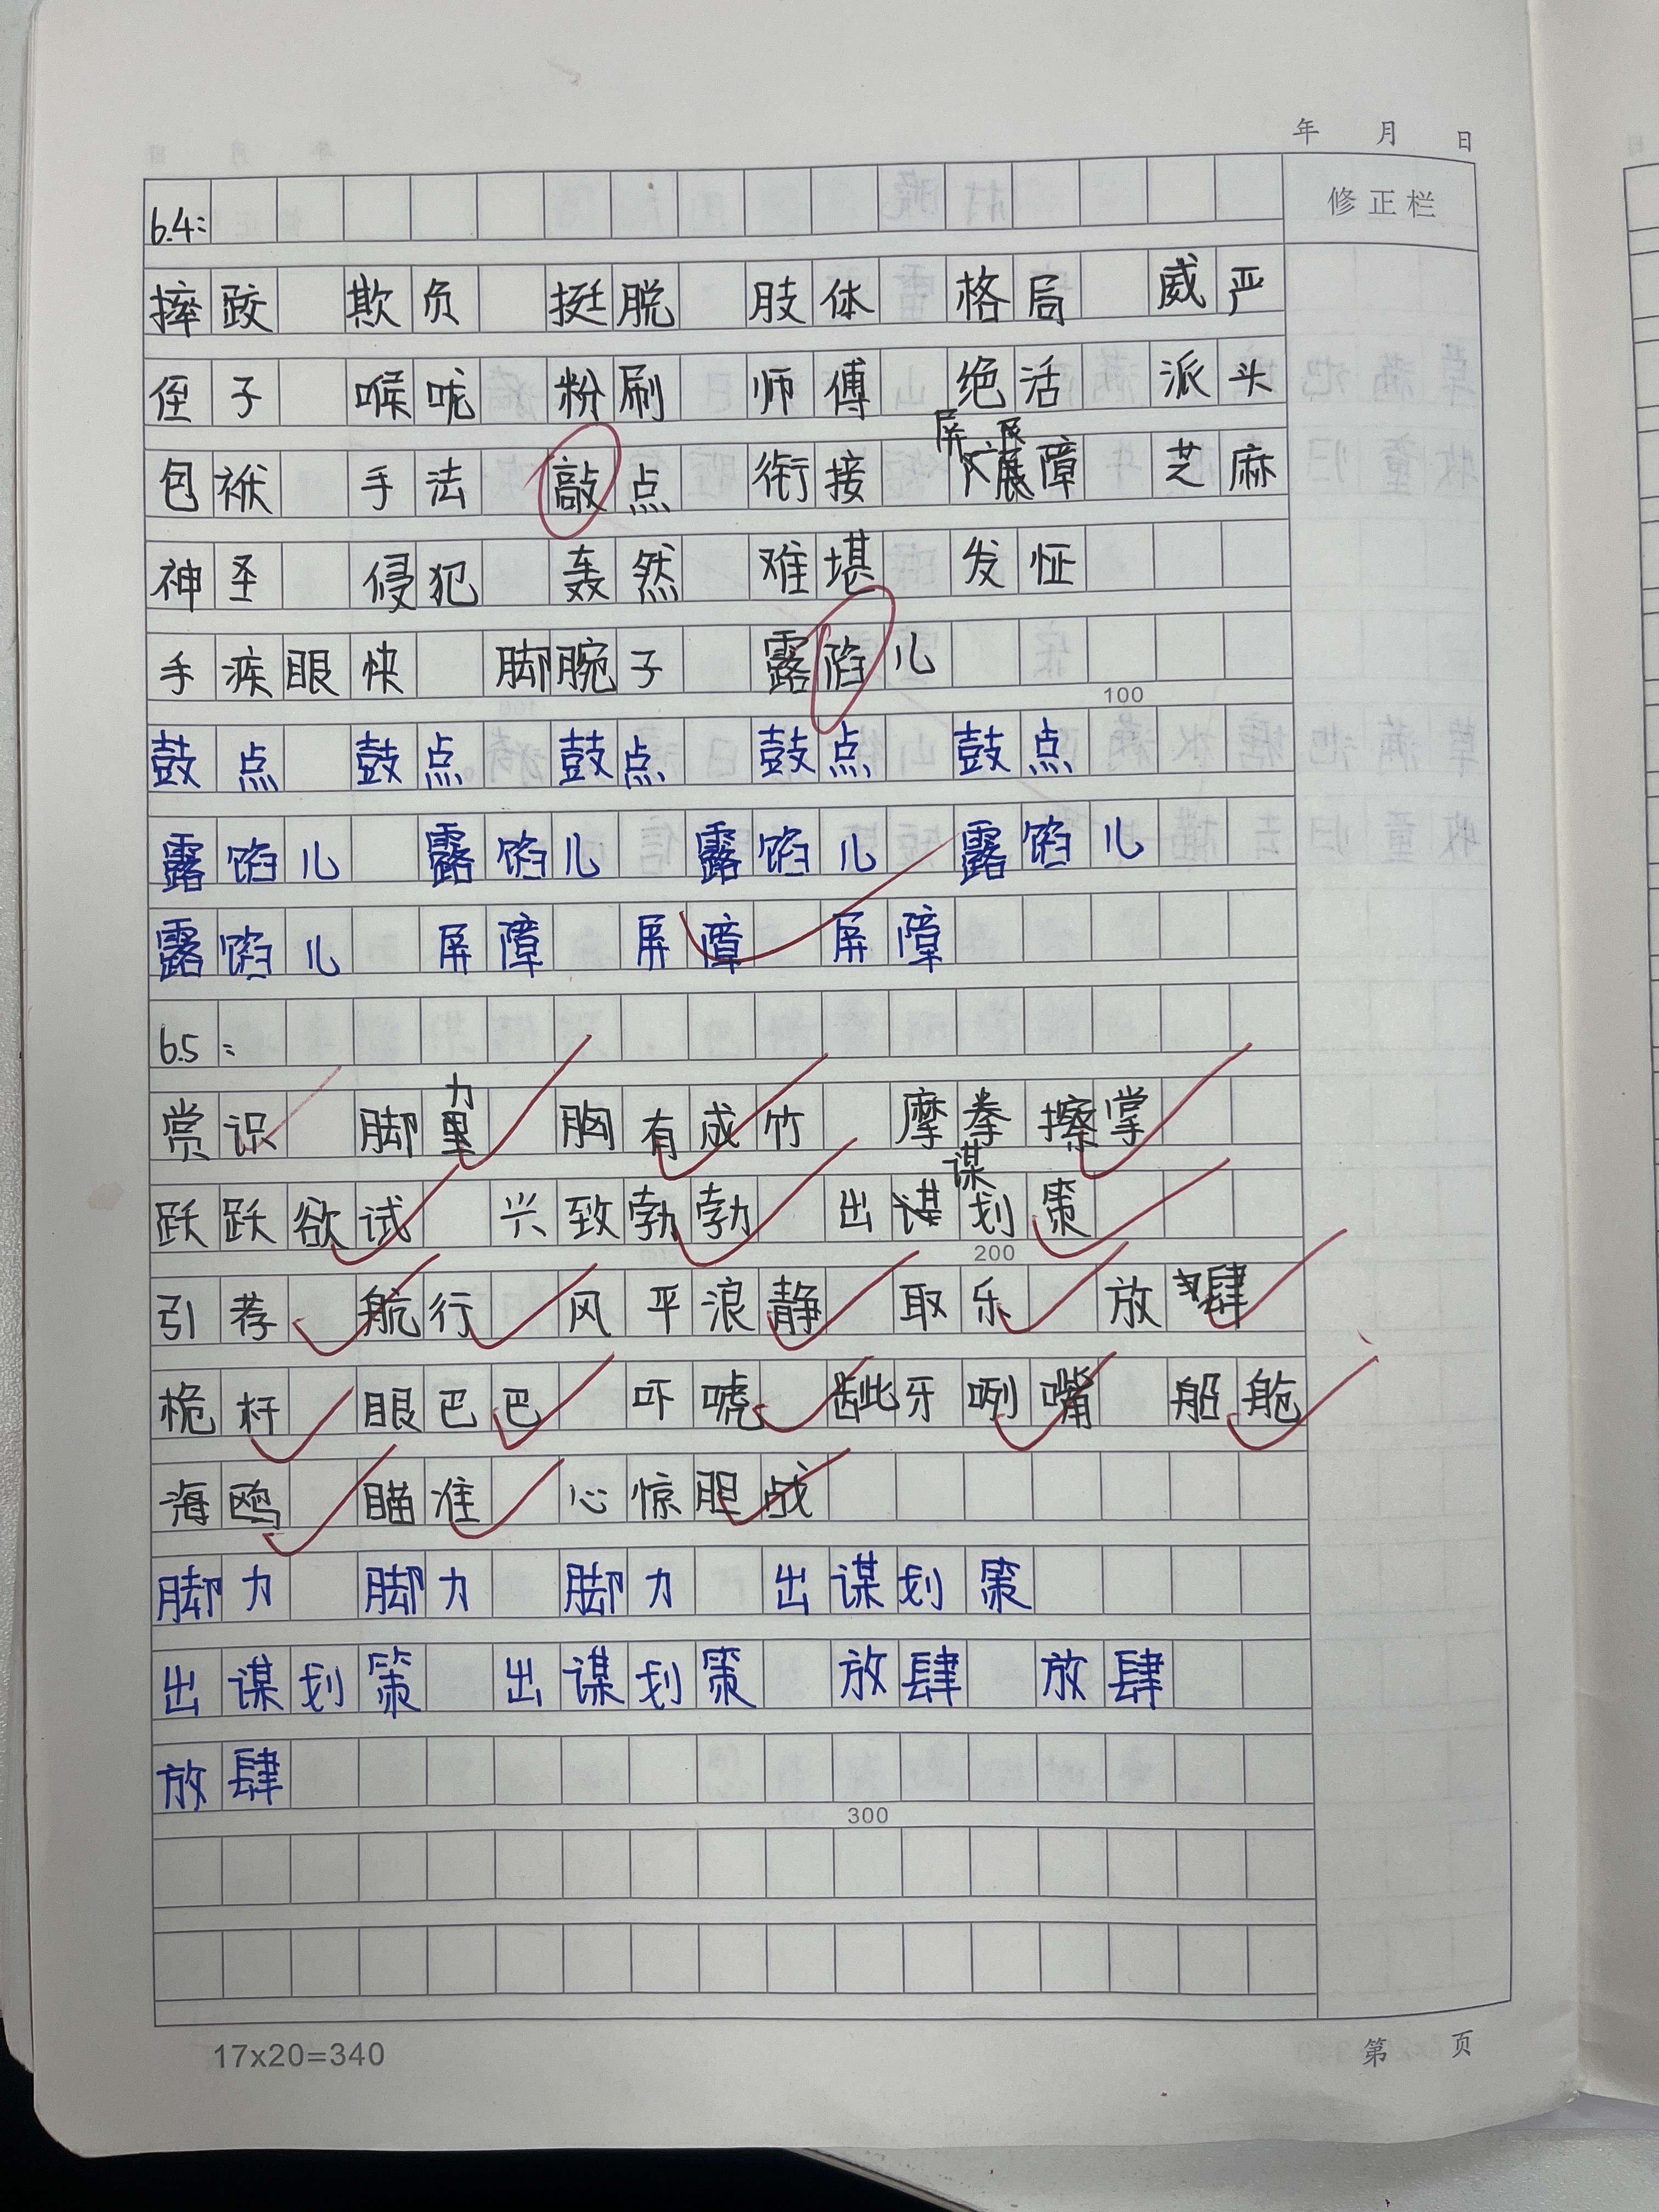 年 月 日
修正栏
6.4:
摔跤 欺负 挺脱 肢体 格局 威严
侄子 喉咙 粉刷 师傅 绝活 派头
屏
包袱 手法 敲点 衔接 障 芝麻
神圣 侵犯 轰然 难堪 发怔
手疾眼快 脚腕子 露馅儿
100
鼓点 鼓点 鼓点 鼓点 鼓点
露馅儿 露馅儿 露馅儿 露馅儿
露馅儿 屏障 屏障 屏障
6.5:
力
赏识 脚 胸有成竹 摩拳擦掌
谋
跃跃欲试 兴致勃勃 出划策
200
引荐 航行 风平浪静 取乐 放肆
桅杆 眼巴巴 吓唬 龇牙咧嘴 船舱
海鸥 瞄准 心惊胆战
脚力 脚力 脚力 出谋划策
出谋划策 出谋划策 放肆 放肆
放肆
300
17x20=340
第 页